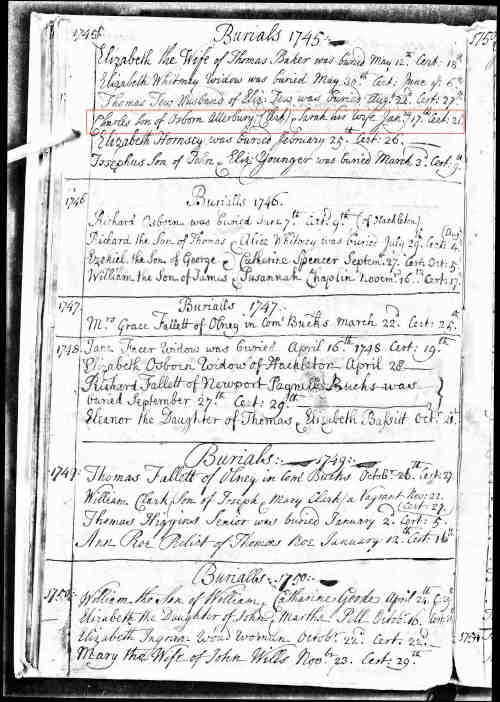 1745 Burials 1745
Elizabeth the Wife of Thomas Baker was buried May 12th Cert: 18th
Elizabeth Whitney Widow was buried May 30th Cert: June ye 6th
Thomas Tews Husband of Eliz: Tews was buried Aug: 22d Cert: 27th
Charles Son of Osborn Atterbury (Clerk) & Sarah his Wife Jan: 17th Cert: 21
Elizabeth Hornsey was buried February 25th Cert: 26
Josephus Son of & Eliz Younger was buried March 3d Cert: 9th
1746 Burialls 1746.
Richard Osborn was buried June 7th Cert: 9th (of Hackleton)
Richard the Son of Thomas & Alice Whitney was buried July 29 Cert: 4
Ezekiel the Son of George & Catherine Spencer Septem: 27. Cert: Oct: 5
William the Son of James & Susannah Chaplin Novemr 16th Cert: 17
1747. Burialls 1747:
Mrs Grace Fallett of Olney in Com: Bucks March 22d Cert: 25th
1748. Jane Facer Widow was buried April 16th 1748 Cert: 19th
Elizabeth Osborn Widow of Hackleton April 28
Richard Fallett of Newport Pagnell Bucks was
buried September 27th Cert: 29th
Eleanor the Daughter of Thomas & Elizabeth Bassitt Octr
Burialls 1749:
1749: Thomas Fallett of Olney in Com: Bucks Octobr 26th Cert: 27
William (Clark) Son of Joseph & Mary Clerk) a Vagrant Nov: 22.
(Cert: 27.
Thomas Higgins Senior was buried January 2. Cert: 5.
Ann Roe Relict of Thomas Roe January 12th Cert: 16th
Burialls 1750:
1750: William the Son of William & Catharine April 24th
Elizabeth the Daughter of John & Martha Pell Octob: 16.
Elizabeth Ingram Woman Octobr 22d Cert: 22d
Mary the Wife of John Wills Novbr 23. Cert: 29th